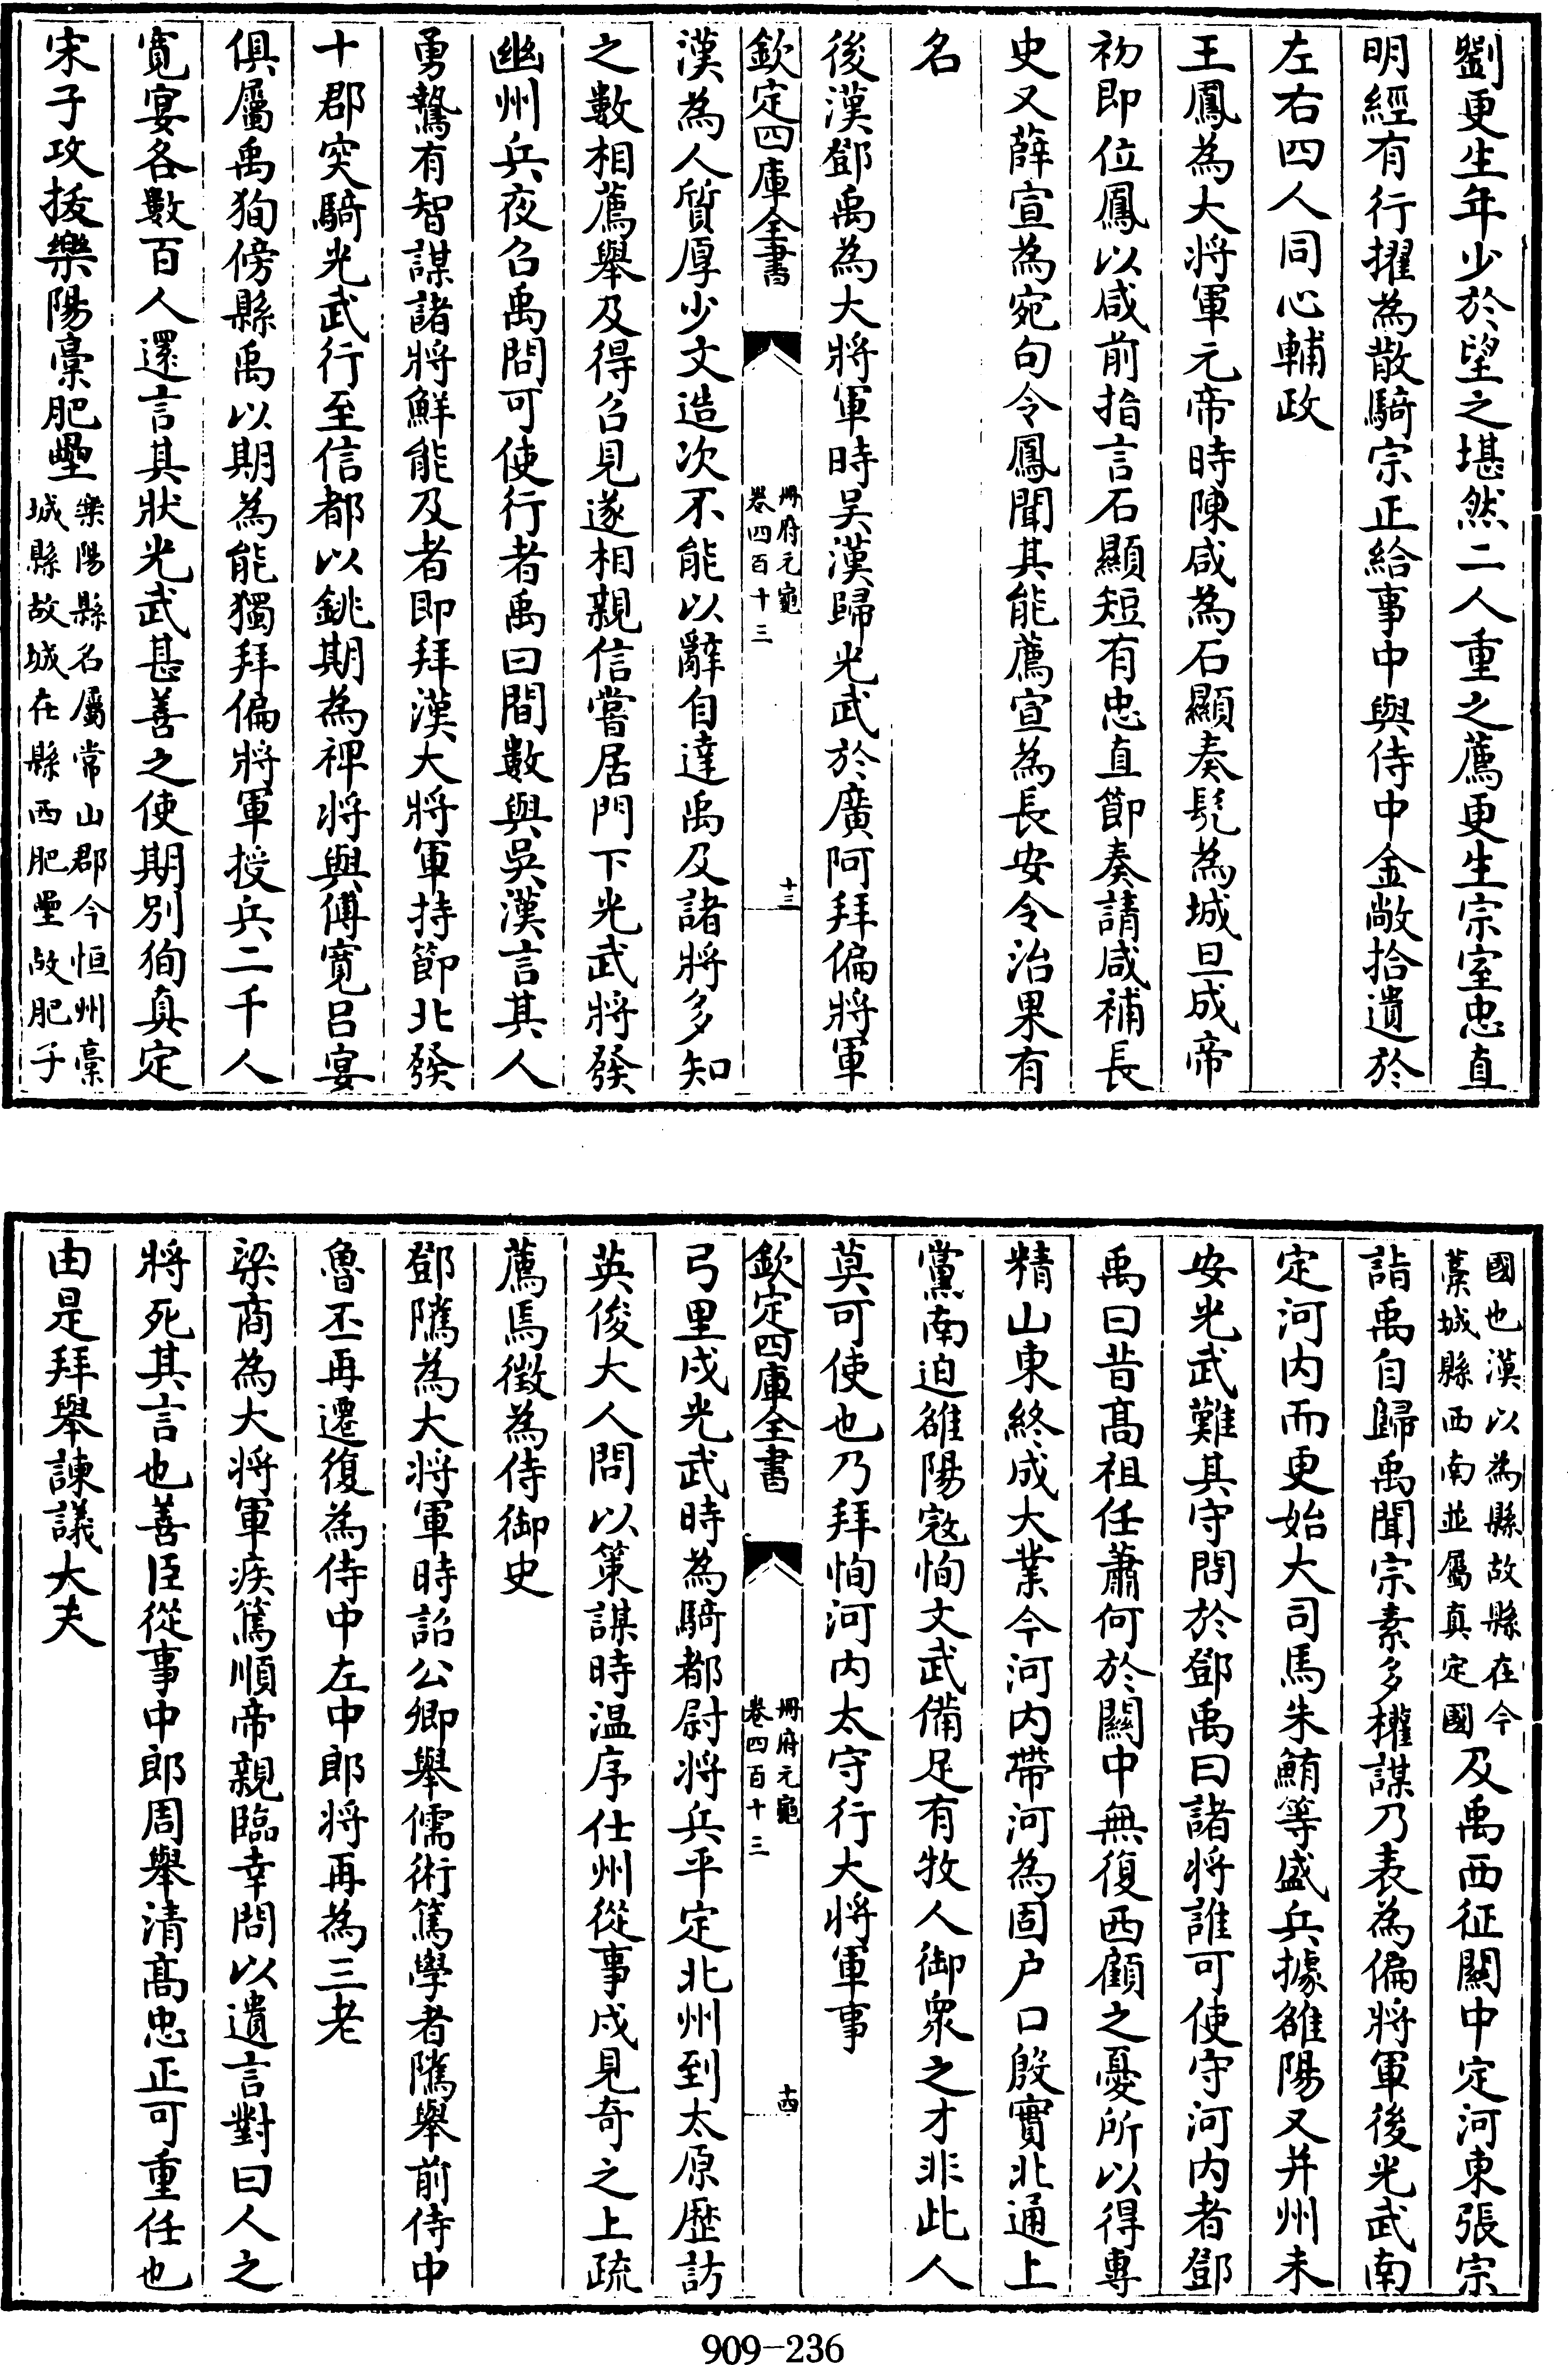 劉更生年少於望之堪然二人重之薦更生宗室忠直
明經有行擢為散騎宗正給事中與侍中金敞拾遺於
左右四人同心輔政
王鳳為大將軍元帝時陳咸為石顯奏髡為城旦成帝
初即位鳳以咸前指言石顯短有忠直節奏請咸補長
史又薛宣為宛句令鳳聞其能薦宣為長安令治果有
名
後漢鄧禹為大將軍時吳漢歸光武於廣阿拜偏將軍
欽定四庫全書
冊府元龜
卷四百十三
十三
漢為人質厚少文造次不能以辭自達禹及諸將多知
之數相薦舉及得召見遂相親信嘗居門下光武將發
幽州兵夜召禹問可使行者禹曰間數與吳漢言其人
勇鷙有智謀諸將鮮能及者即拜漢大將軍持節北發
十郡突騎光武行至信都以銚期為裨將與傅寬呂宴
俱屬禹狥傍縣禹以期為能獨拜偏將軍授兵二千人
寬宴各數百人還言其狀光武甚善之使期別狥真定
宋子攻拔樂陽槀肥壘
樂陽縣名屬常山郡今恒州槀
城縣故城在縣西肥壘故肥子
國也漢以為縣故縣在今
藁城縣西南並屬真定國
及禹西征關中定河東張宗
詣禹自歸禹聞宗素多權謀乃表為偏將軍後光武南
定河內而更始大司馬朱鮪等盛兵據雒陽又并州未
安光武難其守問於鄧禹曰諸將誰可使守河內者鄧
禹曰昔高祖任蕭何於關中無復西顧之憂所以得專
精山東終成大業今河內帶河為固户口殷實北通上
黨南迫雒陽寇恂文武備足有牧人御衆之才非此人
莫可使也乃拜恂河內太守行大將軍事
欽定四庫全書
冊府元龜
卷四百十三
十四
弓里戍光武時為騎都尉將兵平定北州到太原歷訪
英俊大人問以策謀時温序仕州從事戍見奇之上疏
薦焉徵為侍御史
鄧騭為大將軍時詔公卿舉儒術篤學者騭舉前侍中
魯丕再遷復為侍中左中郎將再為三老
梁商為大將軍疾篤順帝親臨幸問以遺言對曰人之
將死其言也善臣從事中郎周舉清高忠正可重任也
由是拜舉諫議大夫
909-236